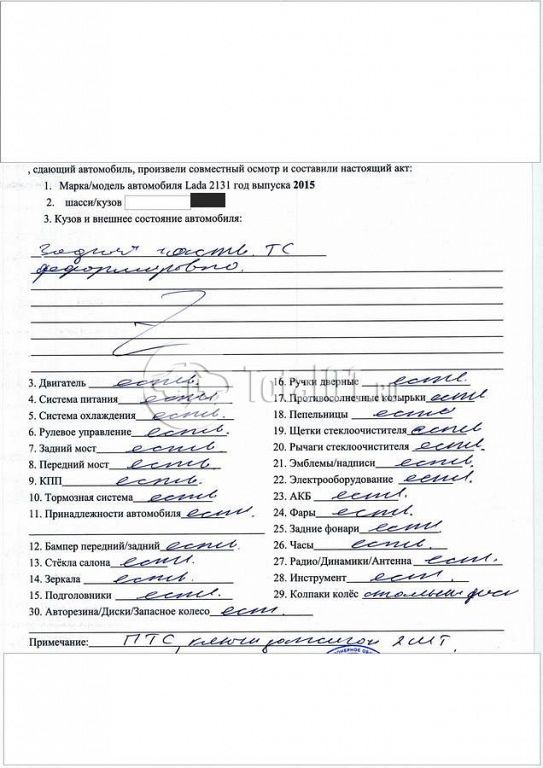 , сдающий автомобиль, произвели совместный осмотр и составили настоящий акт:
1. Марка/модель автомобиля Lada 2131 год выпуска 2015
2. шасси/кузов
3. Кузов и внешнее состояние автомобиля:
Задняя часть ТС
деформировна.
Total01.ru
3. Двигатель есть
4. Система питания есть
5. Система охлаждения есть.
6. Рулевое управление есть
7. Задний мост есть
8. Передний мост есть
9. КПП есть.
10. Тормозная система есть
11. Принадлежности автомобиля есть
12. Бампер передний/задний есть.
13. Стёкла салона есть.
14. Зеркала есть.
15. Подголовники есть.
16. Ручки дверные есть.
17. Противосолнечные козырьки есть
18. Пепельницы есть
19. Щетки стеклоочистителя есть
20. Рычаги стеклоочистителя есть.
21. Эмблемы/надписи есть.
22. Электрооборудование есть.
23. АКБ есть.
24. Фары есть.
25. Задние фонари есть.
26. Часы есть.
27. Радио/Динамики/Антенна есть.
28. Инструмент есть.
29. Колпаки колёс стальные диски
30. Авторезина/Диски/Запасное колесо есть.
Примечание: ПТС, ключи зажиган 2 шт.